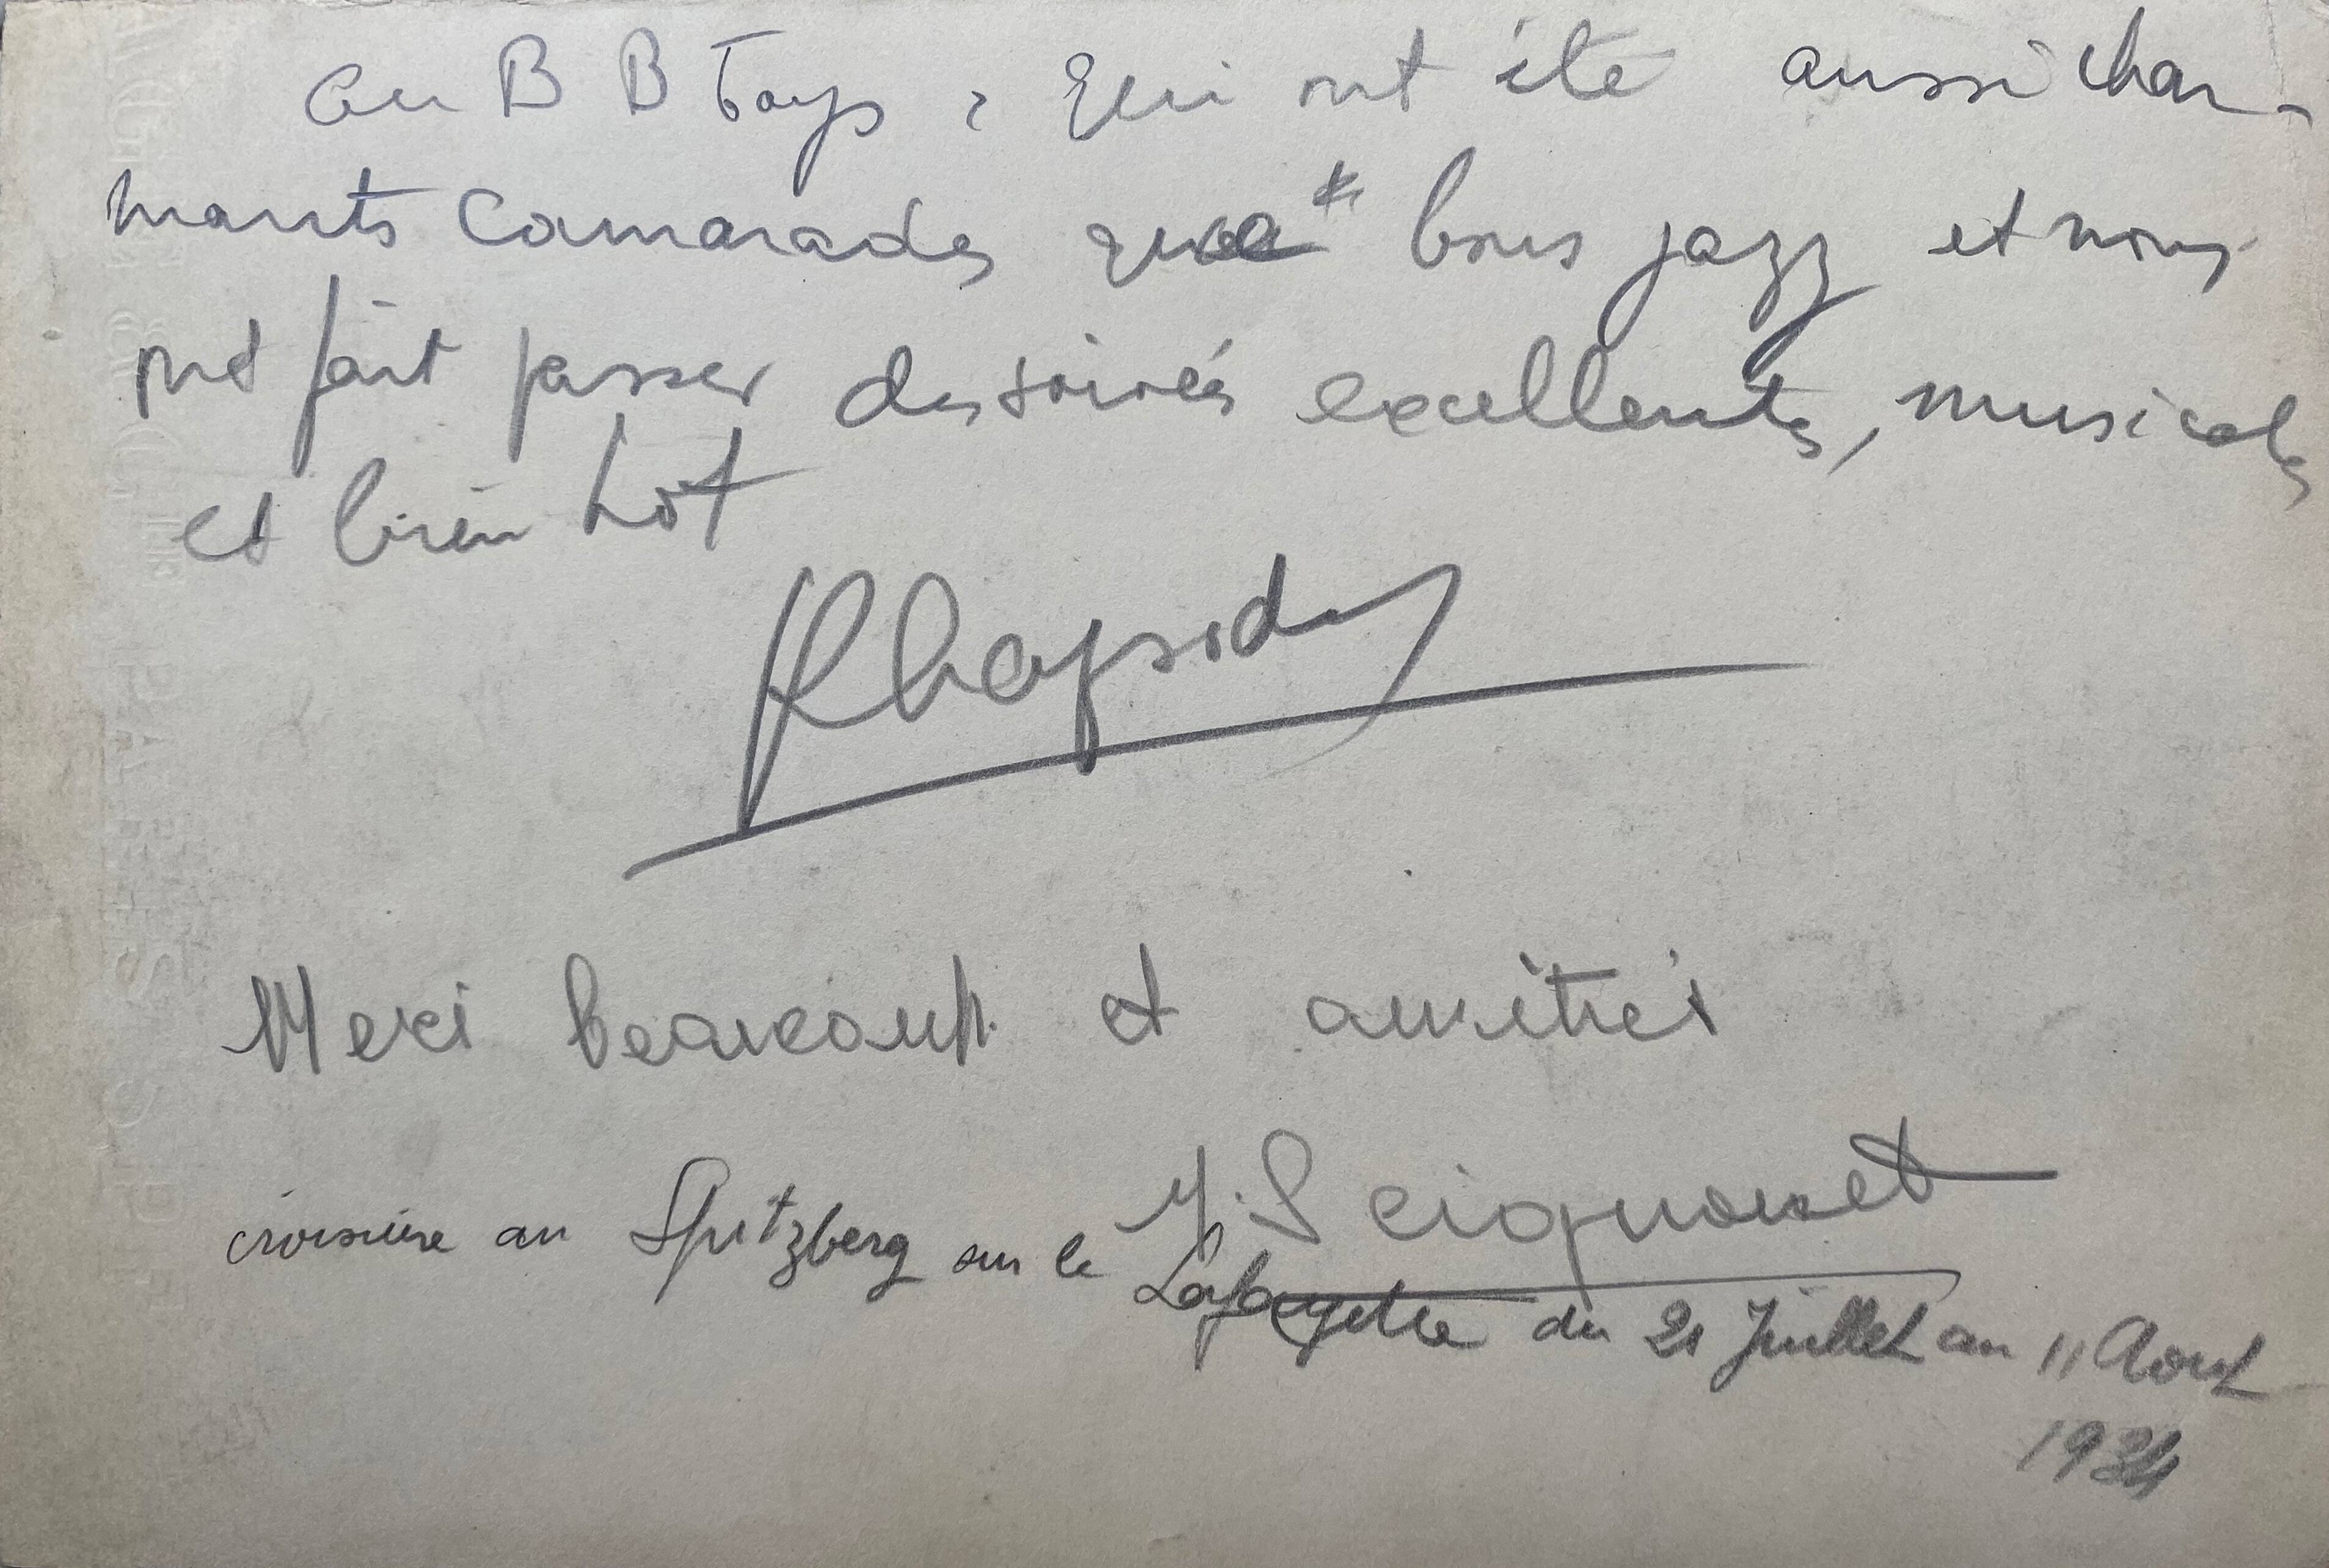 au B B Boys, qui ont été aussi char-
mants camarades que bons jazz et nous
ont fait passer des soirées excellentes, musicales
et bien hot
Rhapsody
Merci beaucoup et amitiés
Seignouret
croisière au Spitzberg sur le Lafayette du 21 Juillet au 11 Aout
1934